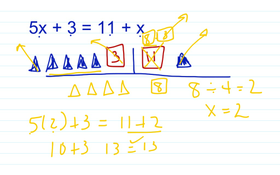 5x + 3 = 11 + x
3 11 8
8
8 ÷ 4 = 2
x = 2
5(2)+3 = 11+2
10+3 13 = 13